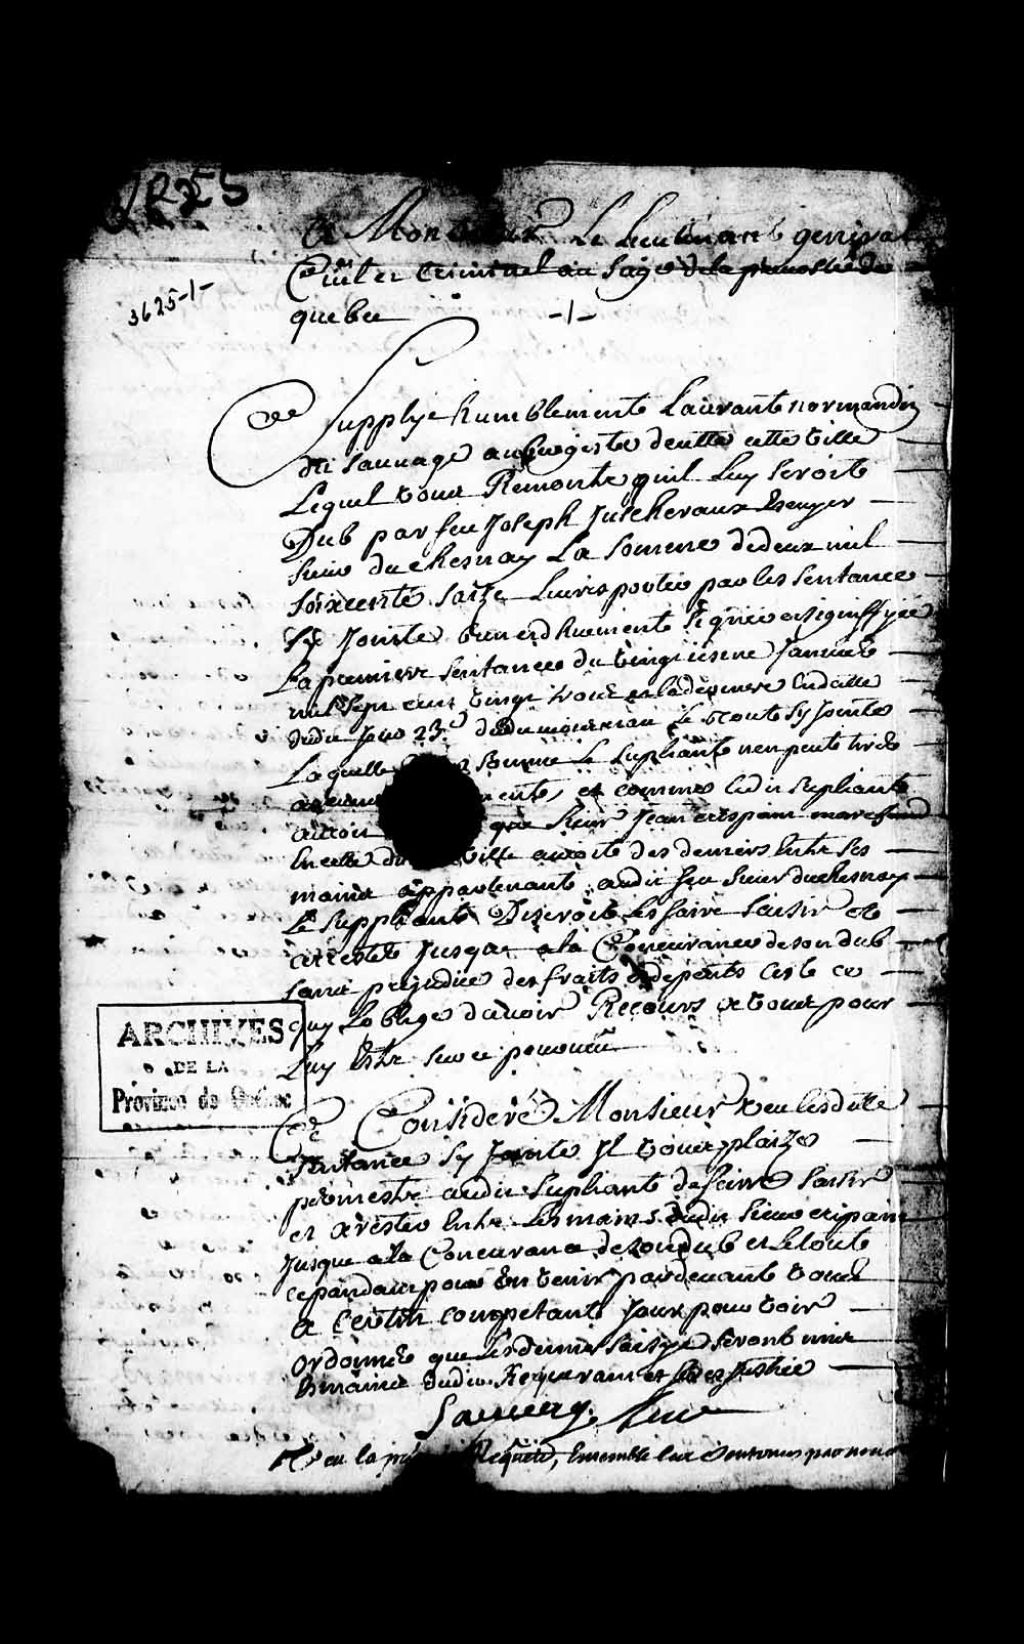 3625
A Monsieur Le Lieutenant general
Civil et Criminel au Siege de la prevosté de
quebec
3625-1-
-1-
Supplye humblement Laurant normandin
dit Sauvage aubergiste de cette ville
Lequel vous Remontre quil Luy Seroit
Dub par feu Joseph Juchereaux Escuyer
Sieur duchesnay La Somme de deux mil
Soixcente Saize Livres portée par les Sentance
Sy Jointe bien et dhuement Signée et Signiffyée
La premiere Sentance du vingtiesme Janviere
mil Sept cent vingt trois et la derniere en datte
dudit Jour 23e dudit mois et an Le tout Sy Jointe
Laquelle Somme Le Supliant nen peut tirer
et comme ledit Supliant
auroit que Sieur Jean crespain marchand
En cette ville auroit des deniers Entre Ses
mains appartenant audit feu Sieur duchesnay
Le Suppliant Desiroit Les faire Saisir et
arrester Jusque a la Concurance de son dub
Sans prejudice des fraits et depents Cest ce
quy Loblige davoir Recours a vous pour
Luy Estre Sur ce pourveu
Ce Consideré Monsieur veu lesditte
Sentance Sy Jointe Il vous plaize
permestre audit Supliant de faire Saisir
et arester Entre Les mains dudit Sieur crispain
Jusque a la Concurance de son dub et Le tout
cepandant pour En venir pardevant vous
a Certin competant Jour pour voir
Ordonner que Les deniers Saisye Seront mis
Es mains dudit Requerant et ferez Justice
ARCHIVES
DE LA
Province de Québec
Veu la Requete, Ensemble les Sentences